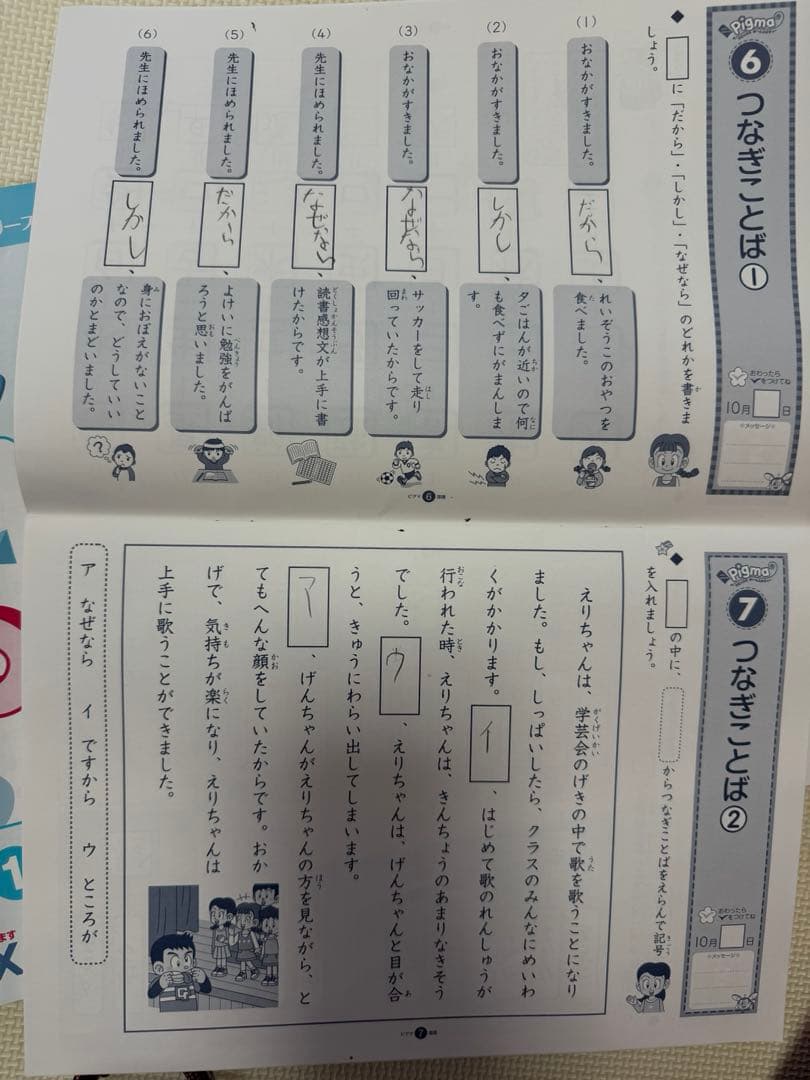 Pigma
6 つなぎことば①
おわったら
✓をつけてね
10月 日
☆メッセージ☆
◆ □に「だから」・「しかし」・「なぜなら」のどれかを書きま
しょう。
(1) おなかがすきました。 だから、れいぞうこのおやつを
食べました。
(2) おなかがすきました。 しかし、夕ごはんが近いので何
も食べずにがまんしま
す。
(3) おなかがすきました。 なぜなら、サッカーをして走り
回っていたからです。
(4) 先生にほめられました。 なぜなら、読書感想文が上手に書
けたからです。
(5) 先生にほめられました。 だから、よけいに勉強をがんば
ろうと思いました。
(6) 先生にほめられました。 しかし、身におぼえがないこと
なので、どうしていい
のかとまどいました。
ピグマ 6 国語
Pigma
7 つなぎことば②
おわったら
✓をつけてね
10月 日
☆メッセージ☆
◆ □の中に、 からつなぎことばをえらんで記号
を入れましょう。
えりちゃんは、学芸会のげきの中で歌を歌うことになり
ました。もし、しっぱいしたら、クラスのみんなにめいわ
くがかかります。イ、はじめて歌のれんしゅうが
行われた時、えりちゃんは、きんちょうのあまりなきそう
でした。ウ、えりちゃんは、げんちゃんと目が合
うと、きゅうにわらい出してしまいます。
ア、げんちゃんがえりちゃんの方を見ながら、と
てもへんな顔をしていたからです。おか
げで、気持ちが楽になり、えりちゃんは
上手に歌うことができました。
ア なぜなら イ ですから ウ ところが
ピグマ 7 国語